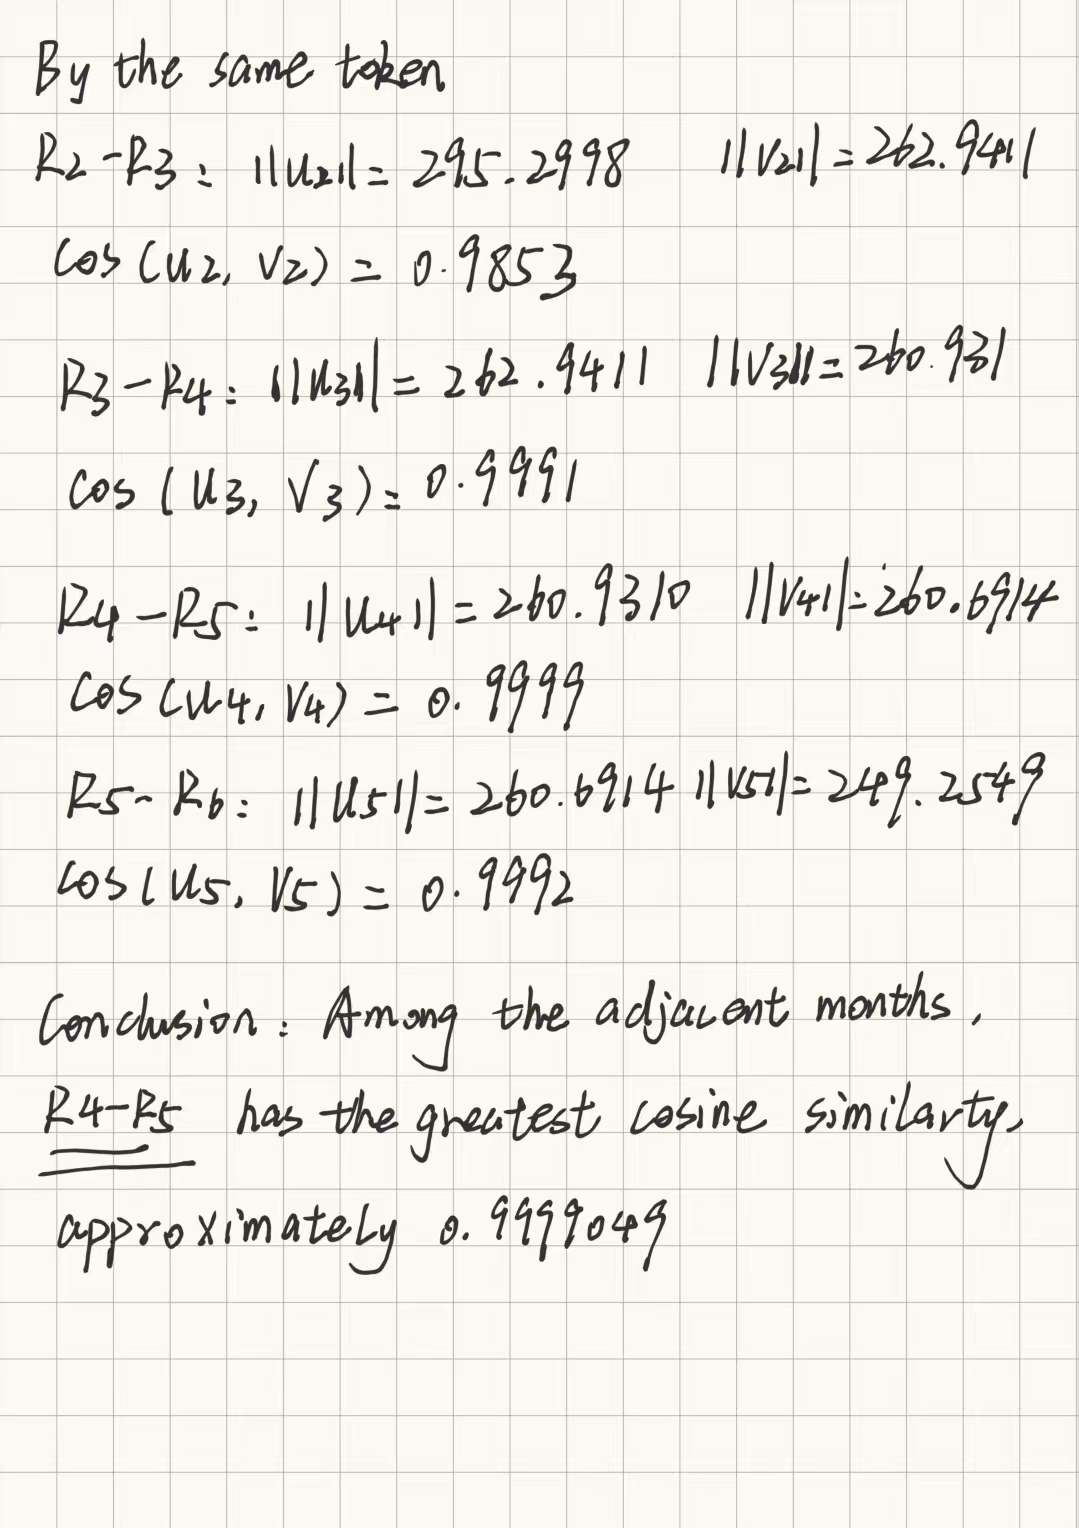 By the same token
R2-R3: ||u2|| = 295.2998 ||v2|| = 262.9411
cos(u2, v2) = 0.9853
R3-R4: ||u3|| = 262.9411 ||v3|| = 260.931
cos(u3, v3) = 0.9991
R4-R5: ||u4|| = 260.9310 ||v4|| = 260.6914
cos(u4, v4) = 0.9999
R5-R6: ||u5|| = 260.6914 ||v5|| = 249.2549
cos(u5, v5) = 0.9992
Conclusion: Among the adjacent months,
R4-R5 has the greatest cosine similarty,
approximately 0.9999049